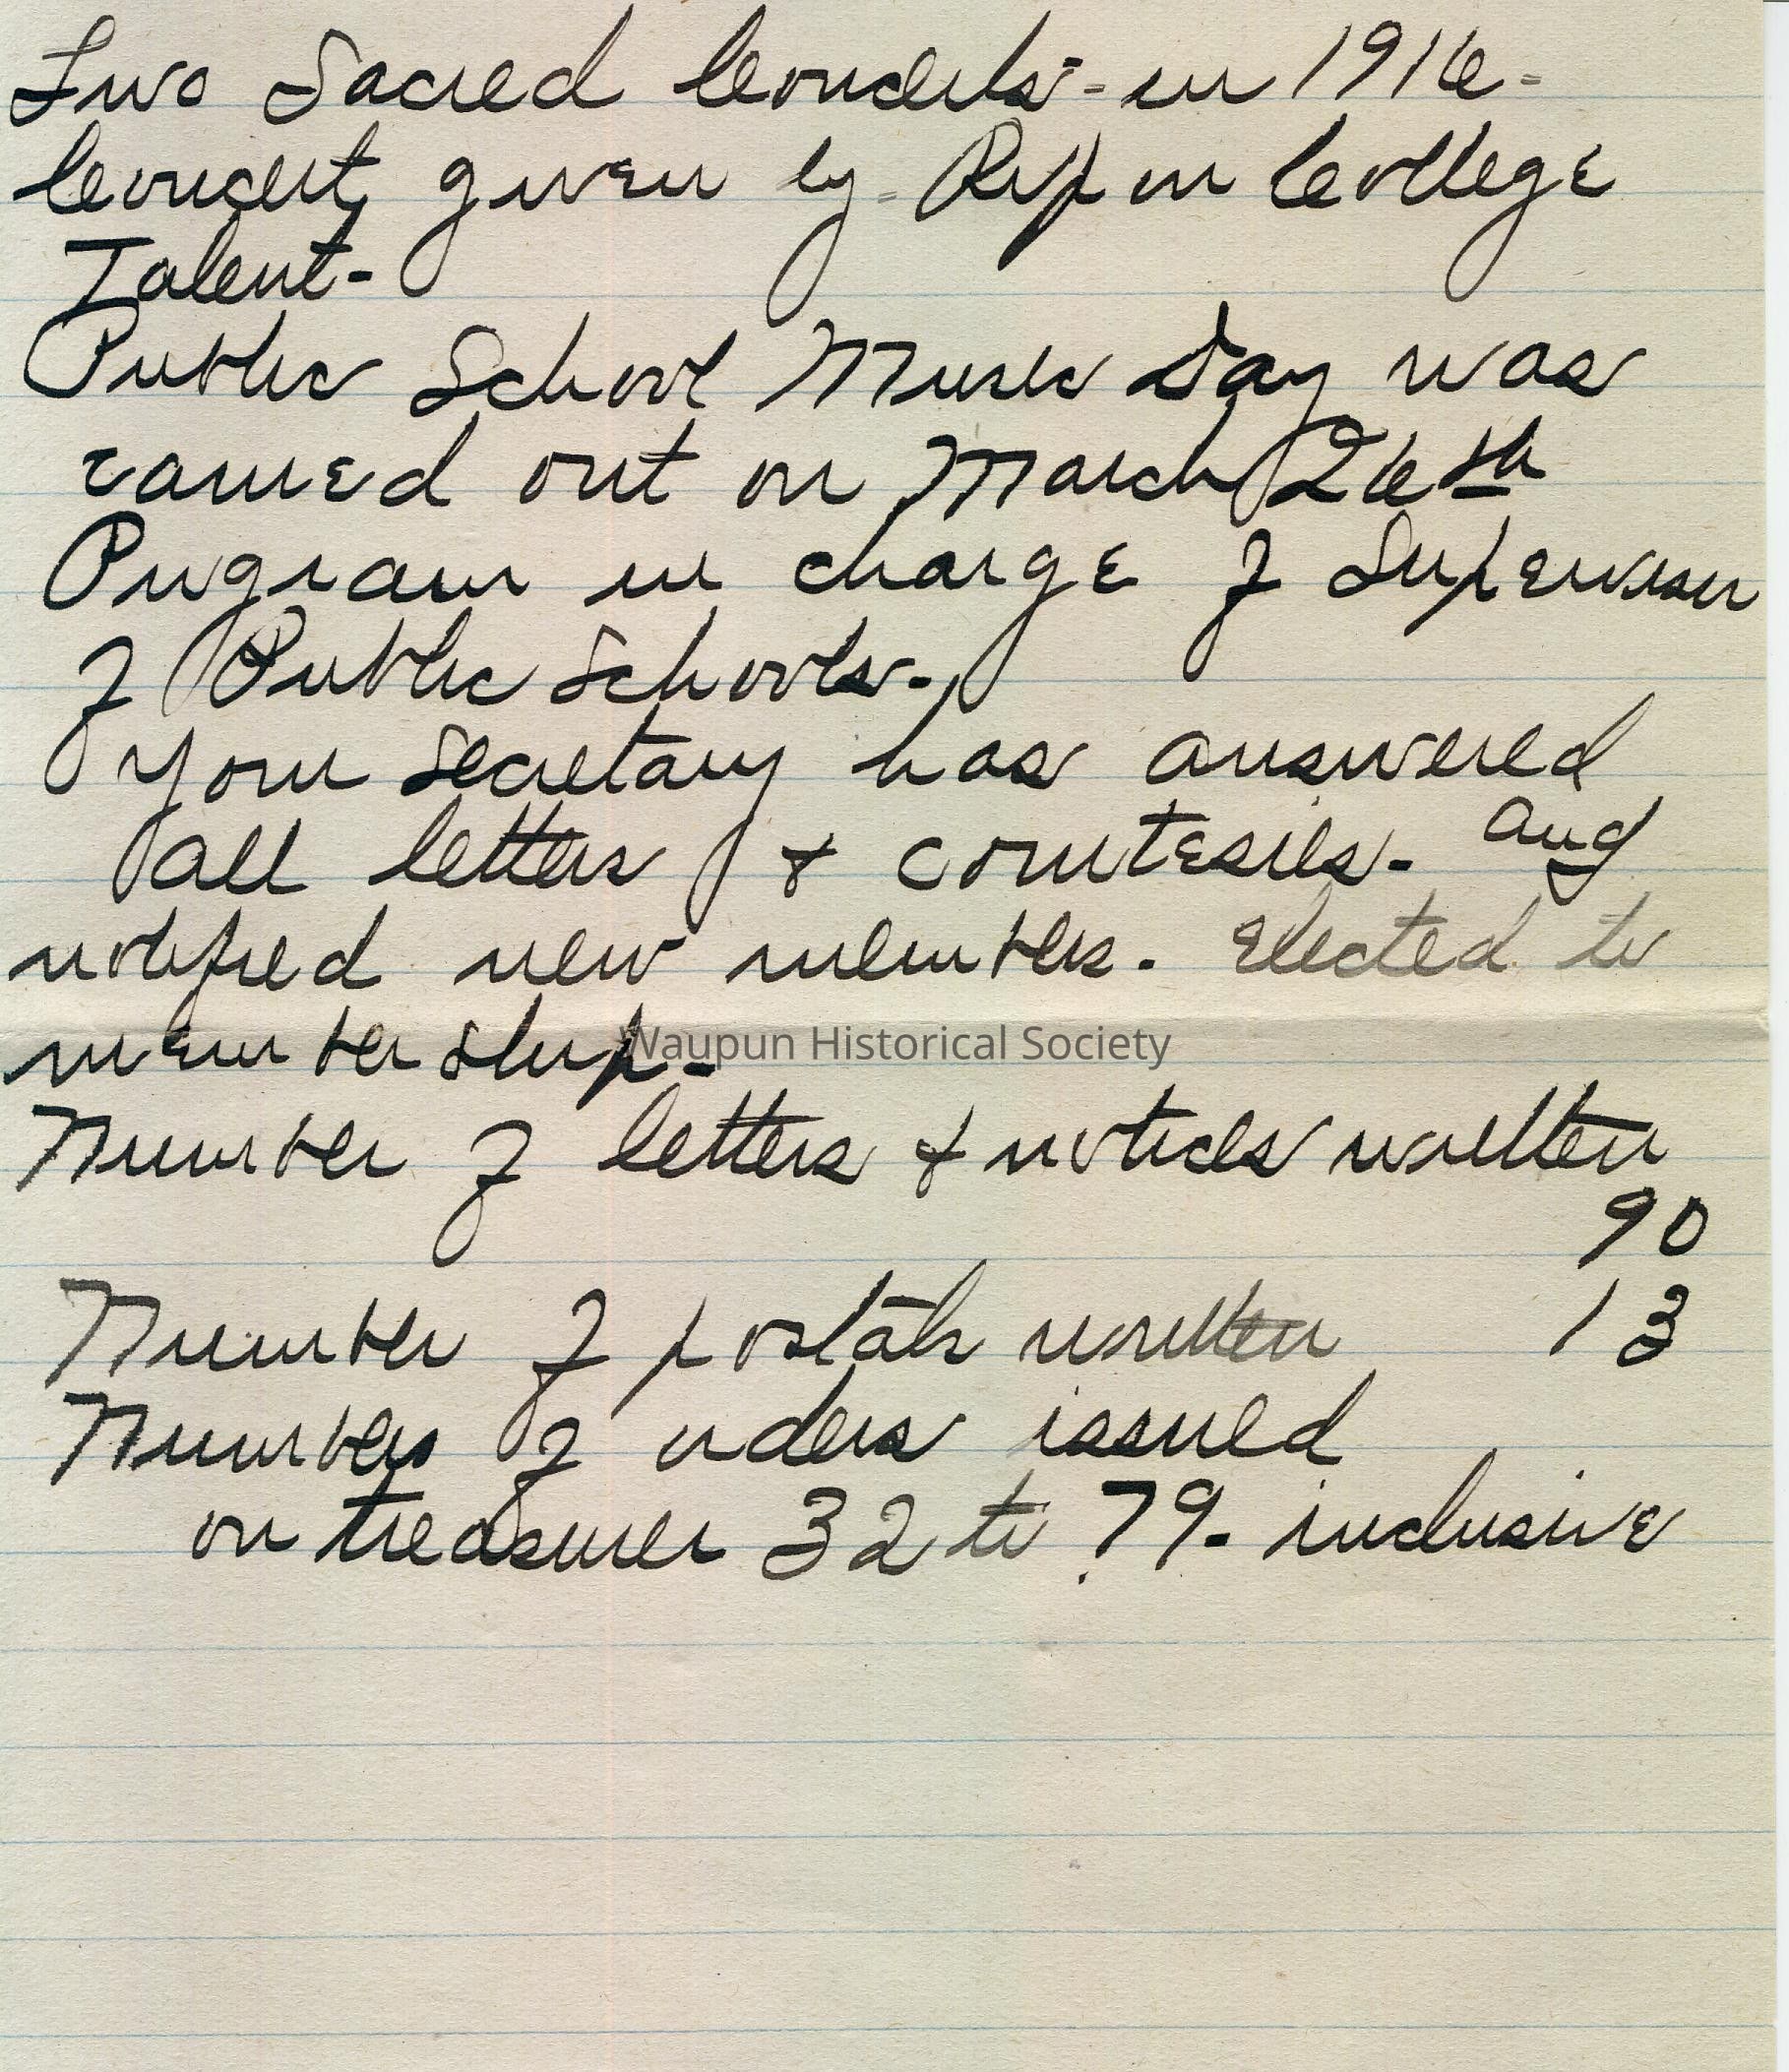 Two Sacred Concerts - in 1916 -
Concert given by - Ripon College
Talent -
Public School Music Day was
carried out on March 26th
Program in charge of Supervisor
of Public Schools -
Your Secretary has answered
all letters & courtesies - and
notified new members. Elected to
membership -
Waupun Historical Society
Number of letters & notices written
90
Number of postals written 13
Number of orders issued
on treasurer 32 to 79 - inclusive